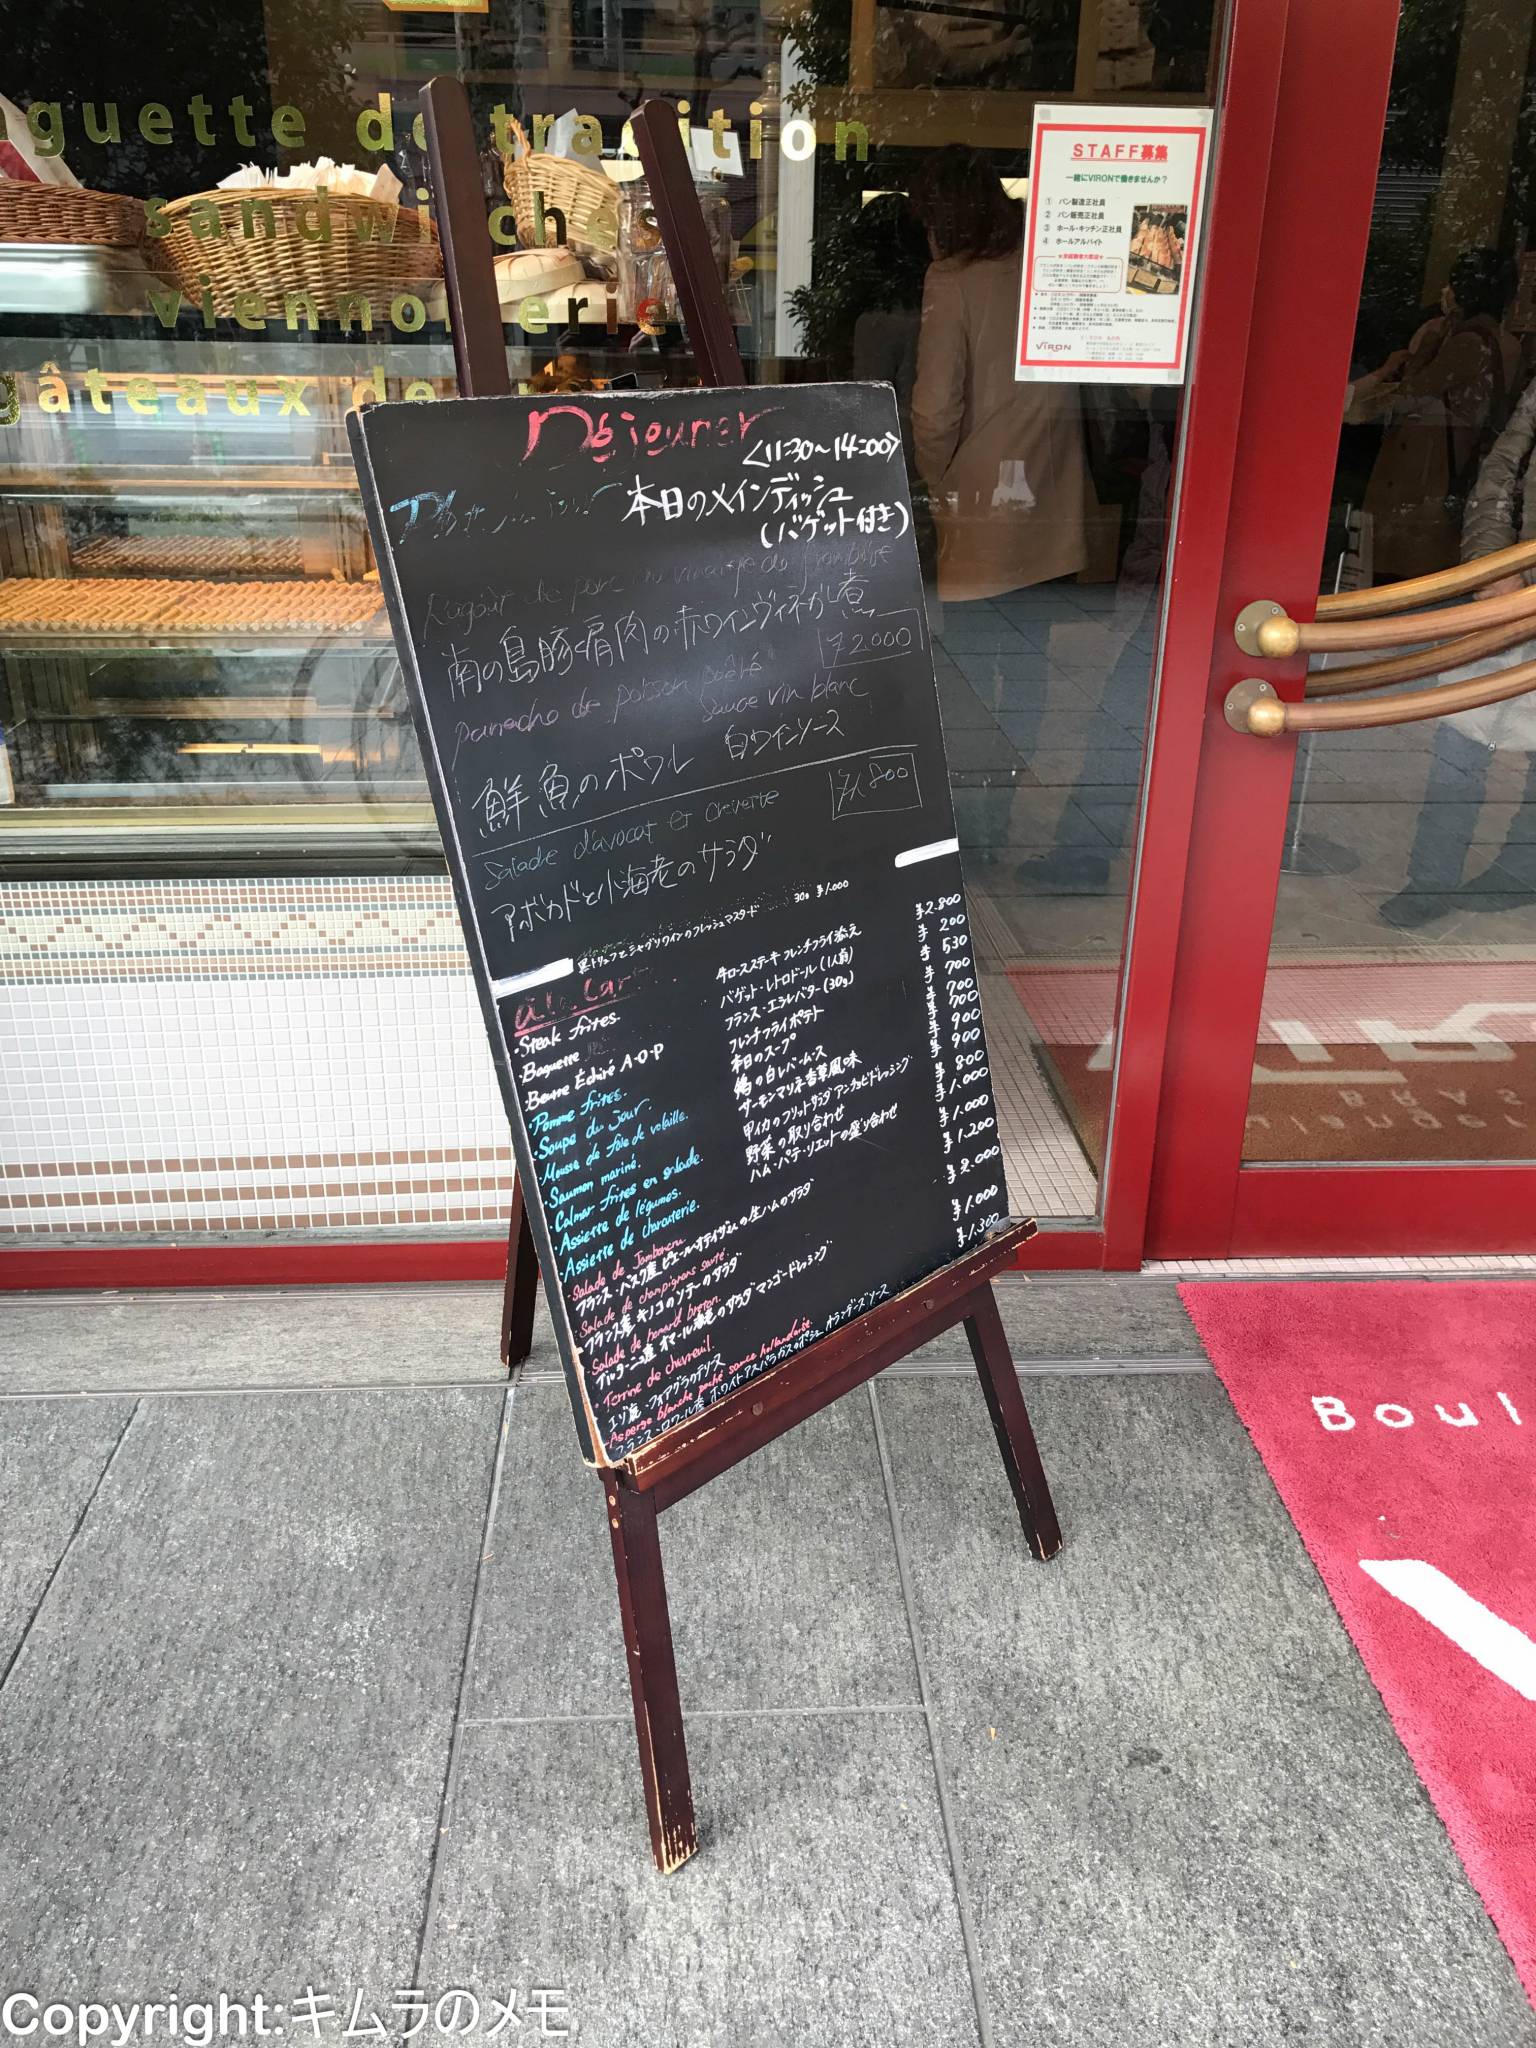 baguette de tradition
sandwiches
viennoiserie
gâteaux de
STAFF募集
一緒にVIRONで働きませんか？
① パン製造正社員
② パン販売正社員
③ ホール・キッチン正社員
④ ホールアルバイト
VIRON
Déjeuner
<11:30~14:00>
本日のメインディッシュ
(バゲット付き)
Ragoût de porc au vinaigre de framboise
南の島豚肩肉の赤ワインヴィネガー煮
¥2.000
panaché de poisson poêlé
sauce vin blanc
鮮魚のポワレ 白ワインソース
¥1.800
Salade d'avocat et crevette
アボカドと小海老のサラダ
黒トリュフとシャブリワインのフレッシュマスタード 30g ¥1.000
à la carte
・Steak frites. 牛ロースステーキ フレンチフライ添え ¥2.800
・Baguette バゲット・レトロドール(1人前) ¥200
・Beurre Échiré A・O・P フランス・エシレバター(30g) ¥530
・Pomme frites. フレンチフライポテト ¥700
・Soupe du jour. 本日のスープ ¥700
・Mousse de foie de volaille. 鶏の白レバームース ¥700
・Saumon mariné. サーモンマリネ香草風味 ¥900
・Calmar frites en salade. 甲イカのフリットサラダ アンチョビドレッシング ¥900
・Assiette de légumes. 野菜の取り合わせ ¥800
・Assiette de charcuterie. ハム・パテ・リエットの盛り合わせ ¥1.000
・Salade de Jambon cru.
フランス・バスク産ピエール・オテイザさんの生ハムのサラダ ¥1.000
・Salade de champignons sauté.
フランス産キノコのソテーのサラダ ¥1.200
・Salade de homard breton.
ブルターニュ産オマール海老のサラダ マンゴードレッシング ¥2.000
・Terrine de chevreuil.
エゾ鹿・フォアグラのテリーヌ ¥1.000
・Asperge blanche poché sauce hollandaise.
フランス・ロワール産 ホワイトアスパラガスのポシェ オランデーズソース ¥1.300
Boul
Copyright:キムラのメモ